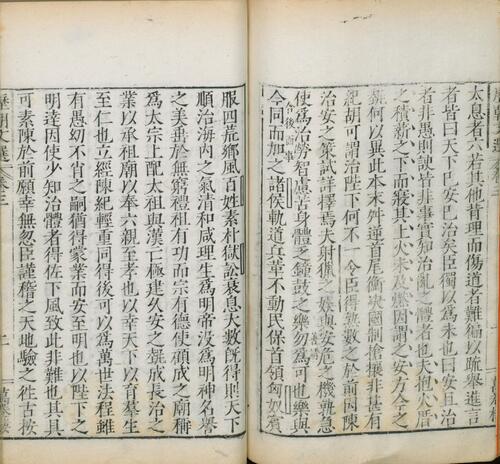 太息者六若其他背理而傷道者難徧以疏舉進言
者皆曰天下已安已治矣臣獨以爲未也曰安且治
者非愚則諛皆非事實知治亂之體者也夫抱火厝
之積薪之下而寢其上火未及燃因謂之安方今之
埶何以異此本末舛逆首尾衡決國制搶攘非甚有
紀胡可謂治陛下何不一令臣得熟數之於前因陳
治安之策試詳擇焉夫射獵之娛與安危之機孰急
使爲治勞智慮苦身體乏鐘鼓之樂勿爲可也樂與
今同而加之諸侯軌道兵革不動民保首領匈奴賓
服四荒鄉風百姓素朴獄訟衰息大數旣得則天下
順治海內之氣清和咸理生爲明帝沒爲明神名譽
之美垂於無窮禮祖有功而宗有德使顧成之廟稱
爲太宗上配太祖與漢亡極建久安之埶成長治之
業以承祖廟以奉六親至孝也以幸天下以育羣生
至仁也立經陳紀輕重同得後可以爲萬世法程雖
有愚幼不肖之嗣猶得蒙業而安至明也以陛下之
明達因使少知治體者得佐下風致此非難也其具
可素陳於前願幸無忽臣謹稽之天地驗之往古按
歷朝文選 卷三